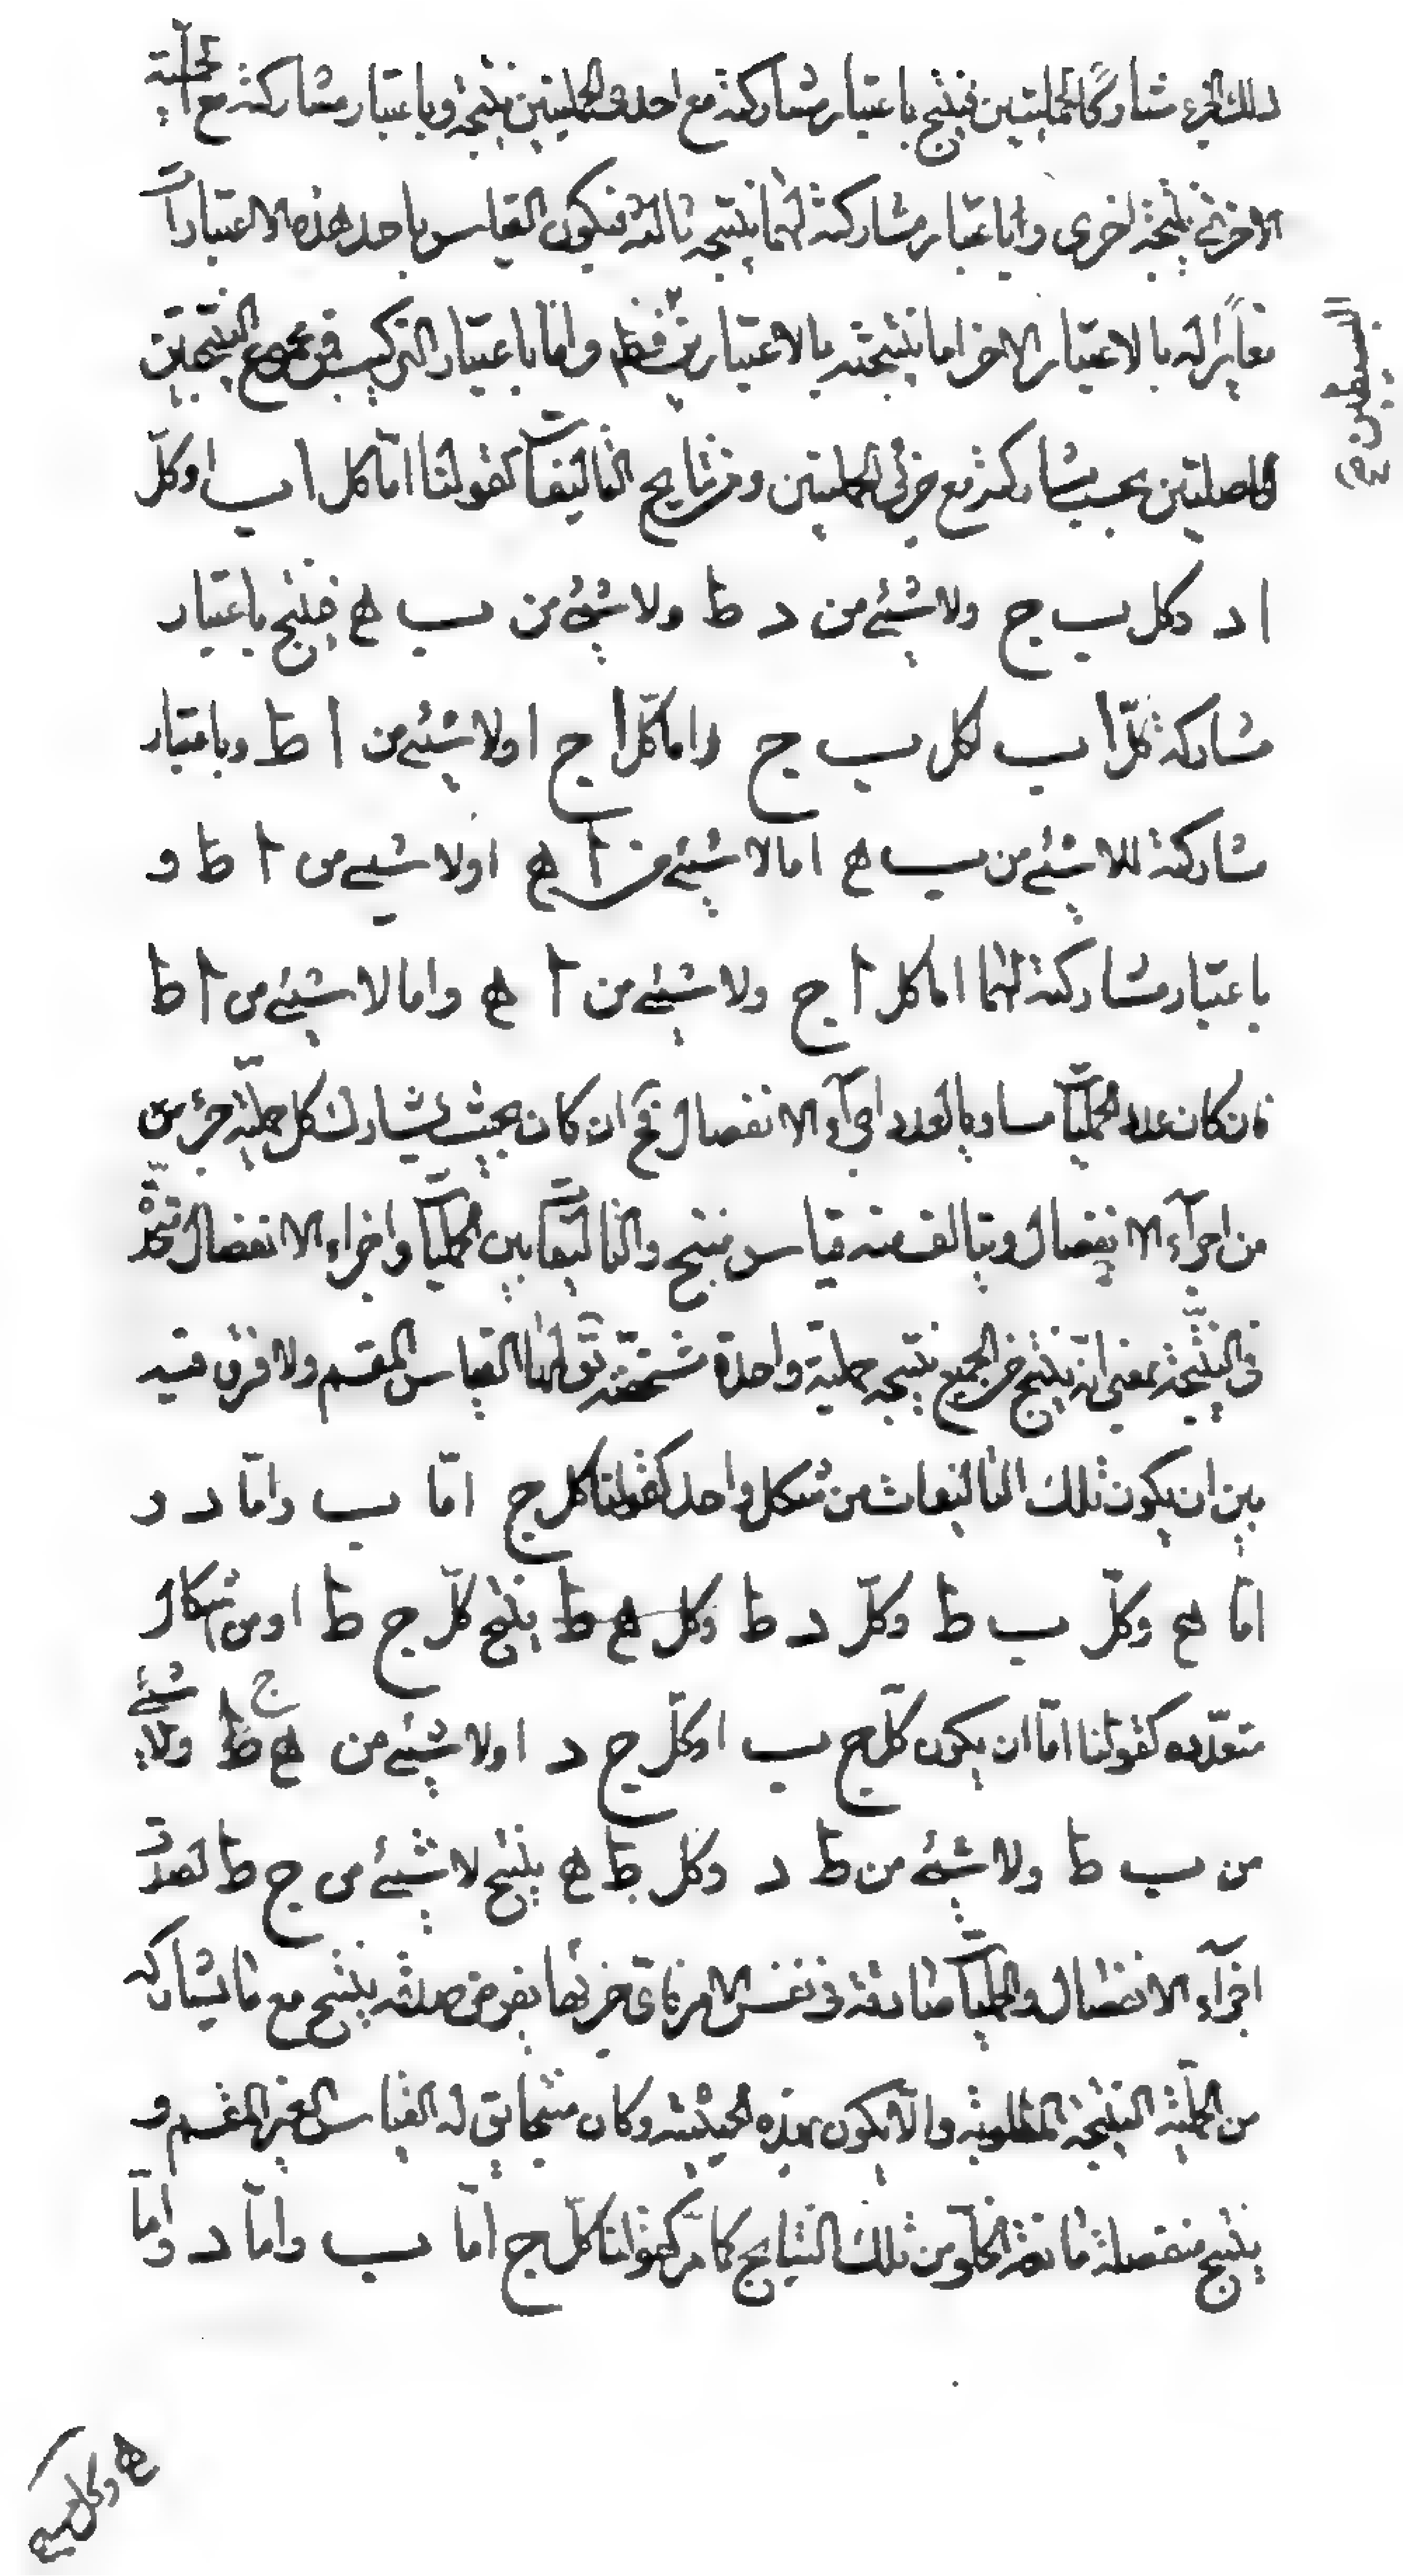 ذلك الجزء مشاركًا لحمليتين فينتج باعتبار مشاركته مع احدى الحمليتين نتيجة وباعتبار مشاركته مع الحملية
الاخرى نتيجة اخرى واباعتبار مشاركته لهما نتيجة ثالثة فيكون القياس باحد هذه الاعتبارا
مغايرا له بالاعتبار الاخر اما بنتيجته بالاعتبارين فقط واما باعتبار التركيب من مجموع النتيجتين
البسيطين صح
الحاصلتين بحسب مشاركته مع جزئي الحمليتين ومن نتايج التاليفآ كقولنا امّا كل ا ب او كلّ
ا د وكل ب ج ولا شيئ من د ط ولا شيئ من ب ه فينتج باعتبار
مشاركة كلّ ا ب لكل ب ج اما كلّ ا ج اولا شيئ من ا ط وباعتبار
مشاركته للاشيئ من ب ه اما لا شيئ من ا ه اولا شيئ من ا ط و
باعتبار مشاركته لهما اما كل ا ج ولا شيئ من ا ه واما لا شيئ من ا ط
فان كان عدد الحمليآ مساويا لعدد اجزآء الانفصال فح ان كان بحيث يشارك كل حمليّة جزء من
من اجزآء الانفصال ويتالف منه قياس منتج والتاليفآ بين الحمليآ واجزاء الانفصال متحدّة
في النتيجة بمعنى انه ينتج من الجميع نتيجه حملية واحدة شخصّته يقال لها القياس المقسم ولا فرق فيه
بين ان يكون تلك التاليفات من شكل واحد كقولنا كل ج امّا ب وامّا د و
امّا ه وكلّ ب ط وكلّ د ط وكل ه ط ينتج كلّ ج ط او من اشكال
متعدّده كقولنا امّا ان يكون كلّ ج ب او كلّ ج د اولا شيئ من ه ج ولا شيئ
من ب ط ولا شيئ من ط د وكل ط ه ينتج لا شيئ من ج ط لصدق
اجزآء الانفصال والحمليآ صادقة في نفس الامر فاي جزئها يفرض صدقه ينتج مع ما يشاركه
من الحمليّة النتيجة المطلوبة والّا يكون بهذه الحيثيّة وكان منتجا يق له القياس الغير المقسم و
ينتج منفصلة مانعة الخلوّ من تلك النتايج كما مرّ كقولنا كلّ ج امّا ب وامّا د وامّا
ه وكل ب